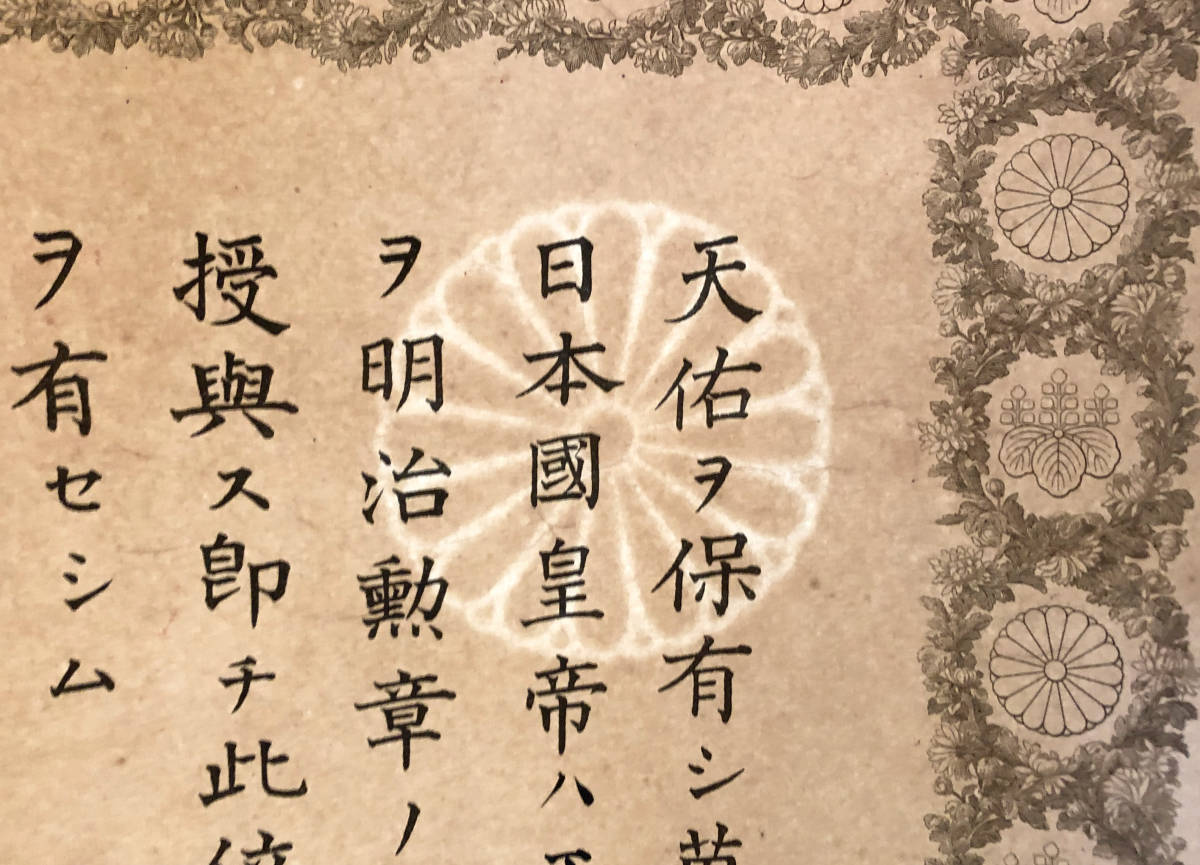 天佑ヲ保有シ萬
日本國皇帝ハ
ヲ明治勲章ノ
授與ス卽チ此
ヲ有セシム